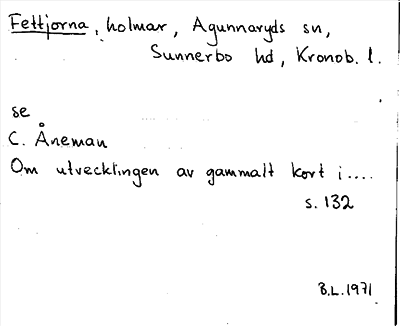 Fettjorna, holmar, Agunnaryds sn,
Sunnerbo hd, Kronob. l.
se
C. Åneman
Om utvecklingen av gammalt kort i....
s. 132
B.L. 1971